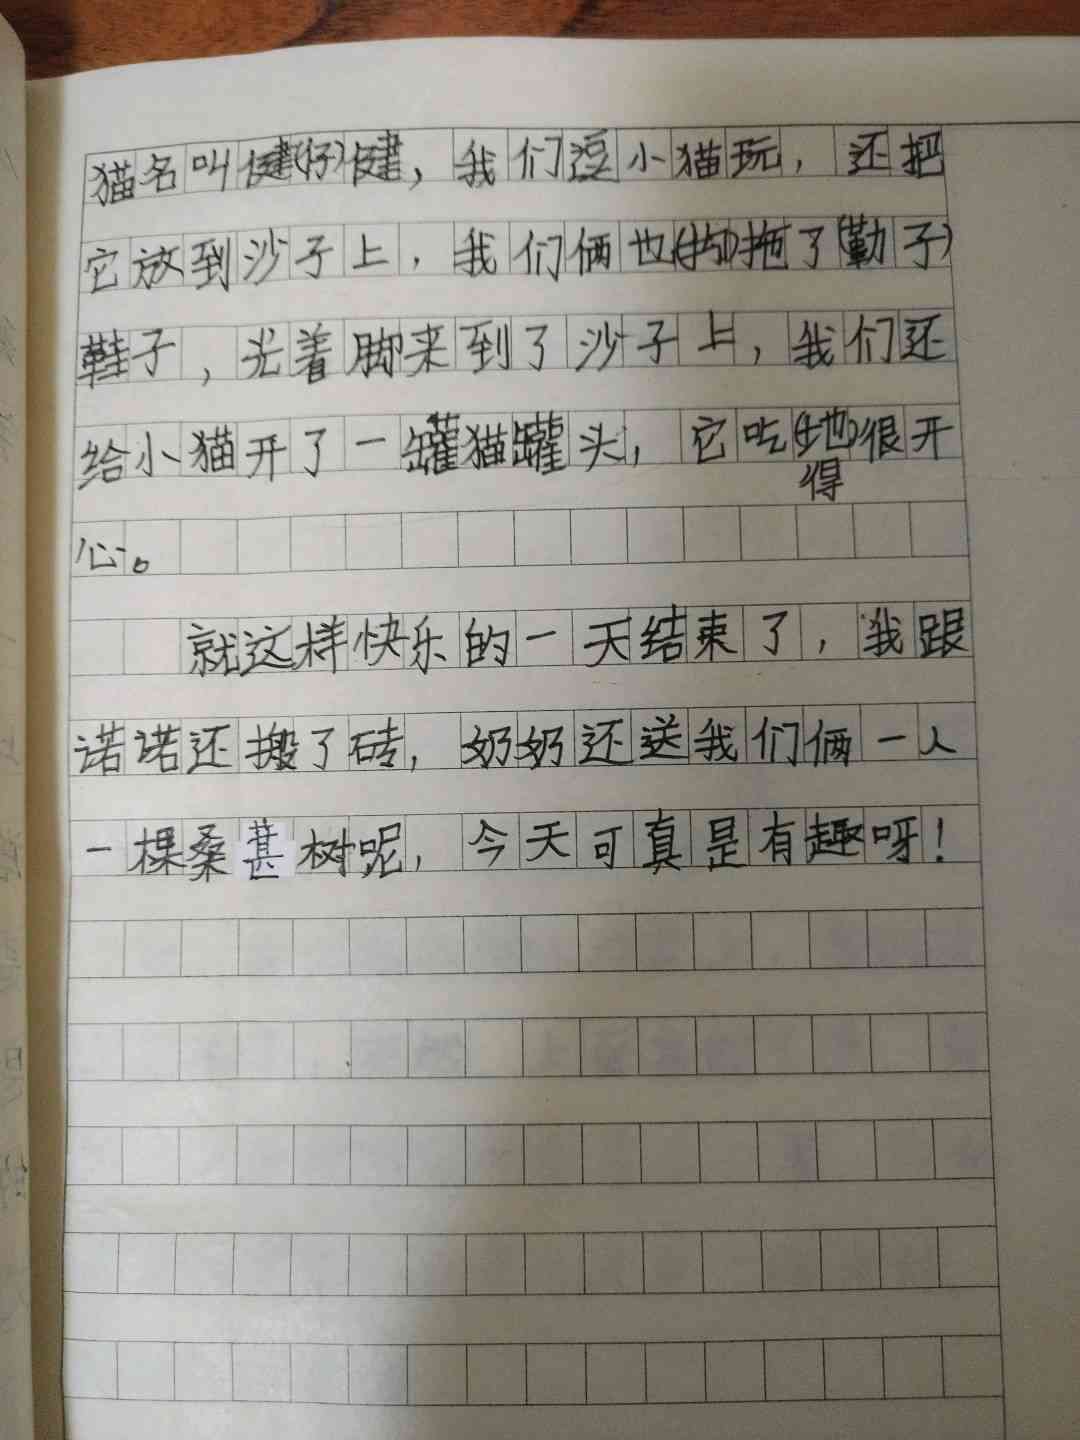 猫名叫健(仔)健，我们逗小猫玩，还把
它放到沙子上，我们俩也拖了(勤子)
鞋子，光着脚来到了沙子上，我们还
给小猫开了一罐猫罐头，它吃(地)很开
得
心。
就这样快乐的一天结束了，我跟
诺诺还搬了砖，奶奶还送我们俩一人
一棵桑葚树呢，今天可真是有趣呀！